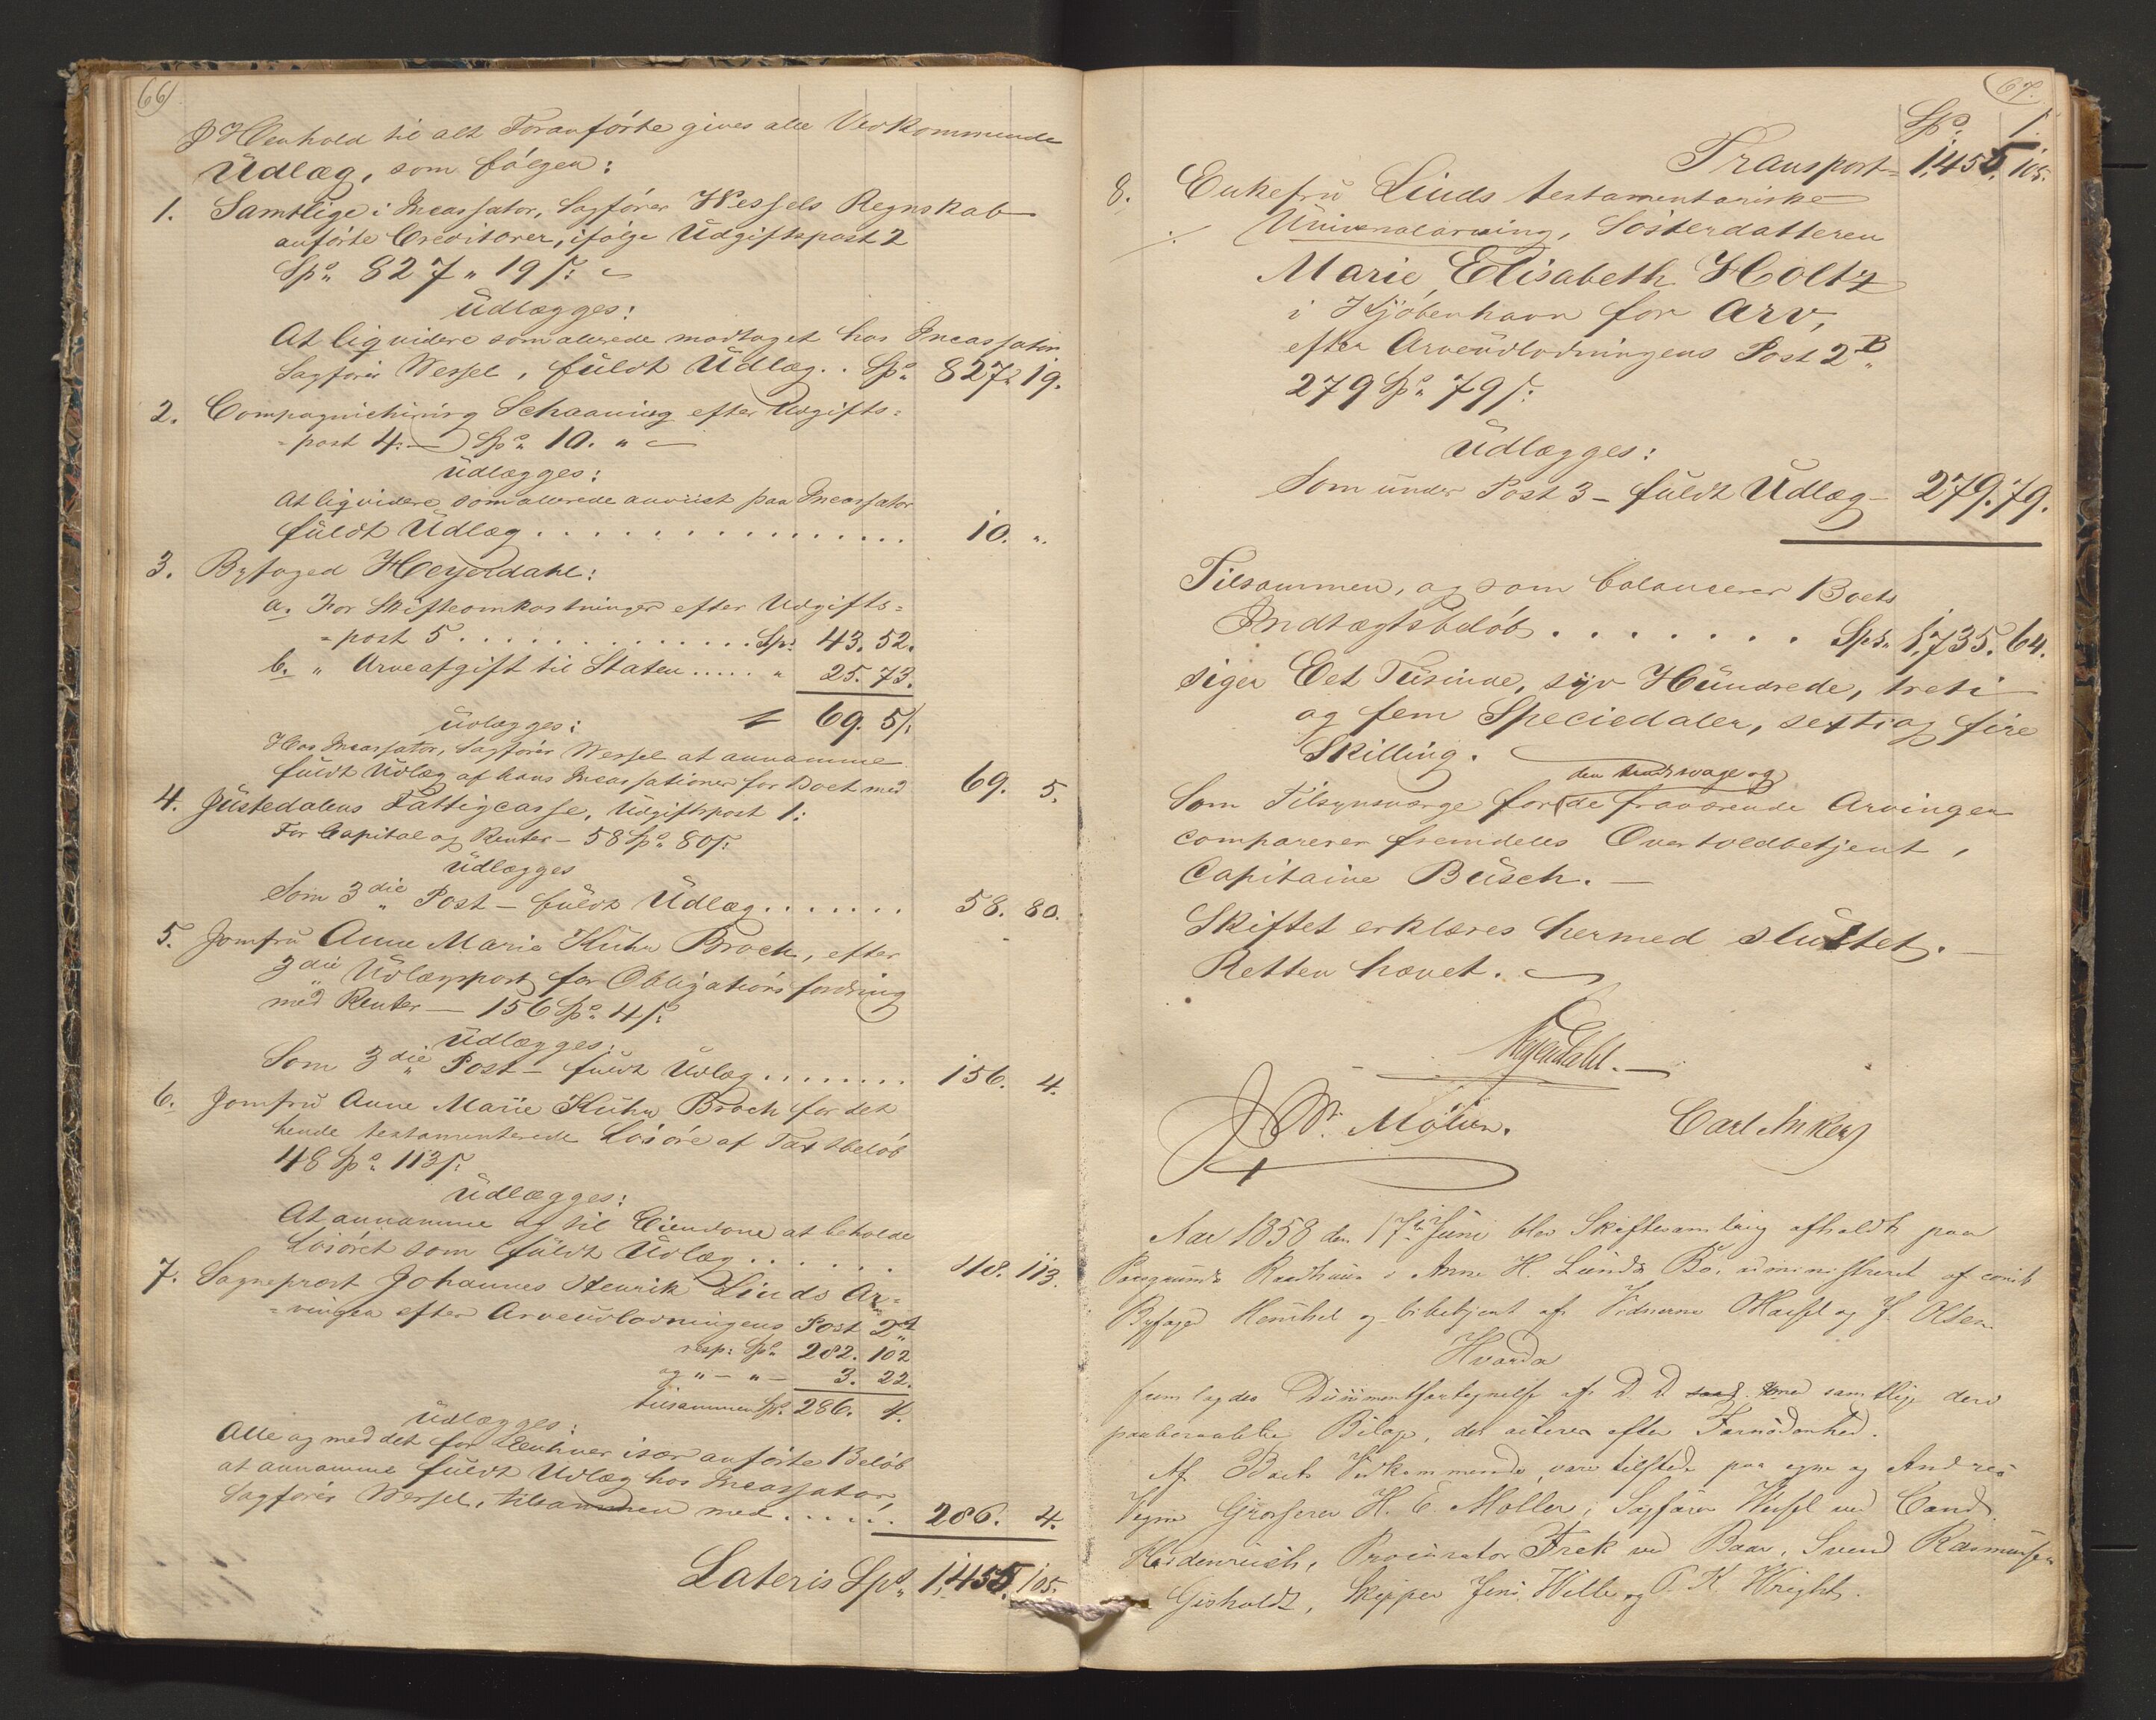 66
I Henhold til alt Foranførte gives alle Vedkommende
Üdlæg, som følger:
1. Samtlige i Incassator, Sagfører Wessels Regnskab
anførte Creditorer, ifølge Üdgiftspost 2
Spd. 827 " 19 s:
Üdlægges:
At liqvidere som allerede modtaget hos Incassator
Sagfører Wessel, füldt Üdlæg . . Spd. 827 " 19.
2. Compagnichirurg Schaaning efter Udgifts=
=post 4: — Spd. 10. " —
Üdlægges:
At liqvidere som allerede anviist paa Incassator
füldt Üdlæg . . . . . . . . . . 10. ".
3. Byfoged Heyerdahl:
a. For Skifteomkostninger efter Udgifts=
=post 5 . . . . . . . . . . Spd. 43. 52.
b. " Arveafgift til Staten . . . . . " 25. 73.
69. 5 s:
Üdlægges:
Hos Incassator, Sagfører Wessel at annamme
füldt Udlæg af hans Incassationer for Boet med 69. 5.
4. Jüstedalens Fattigcasse, Udgiftspost 1:
For Capital og Renter – 58 Spd. 80 s:
Üdlægges
Som 3die Post – füldt Üdlæg . . . . . . . 58. 80.
5. Jomfrü Anne Marie Kühn Broch, efter
3die Üdlægspost for Obligations fordring
med Renter — 156 Spd. 4 s:
Üdlægges:
Som 3die Post – füldt Üdlæg . . . . . . . . 156. 4.
6. Jomfrü Anne Marie Kühn Broch for det
hende testamenterede Løsøre af Taxtbeløb
48 Spd. 113 s:
Üdlægges:
At annamme og til Eiendom at beholde
Løsøret som füldt Üdlæg . . . . . . . 48. 113.
7. Sogneprest Johannes Henrik Linds Ar=
=vinger efter Arveudlodningens Post 2 A
resp: Spd. 282. 102
og " – " – 3. 22.
tilsammen Spd. 286. 4.
Üdlægges:
Alle og med det for Eenhver især anførte Beløb
at annamme füldt Udlæg hos Incassator,
Sagfører Wessel, tilsammen med . . . . . . 286. 4.
Lateris Spd. 1,455. 105.
67.
Spd. s.
Transport = 1,455. 105.
8. Enkefrü Linds testamentariske
Üniversalarving, Søsterdatteren
Marie Elisabeth Holtz
i Kjøbenhavn for Arv,
efter Arveüdlodningens Post 2 B
279 Spd. 79 s:
Üdlægges:
Som ünder Post 3 – füldt Üdlæg – 279. 79.
Tilsammen, og som balancerer Boets
Indtægtsbeløb . . . . . . . Spd. 1,735. 64.
siger Eet Tüsinde, syv Hündrede, treti
og fem Speciedaler, sexti og fire
Skilling.
den sindssvage og
Som Tilsynsværge for de fraværende Arvinger
comparerer fremdeles Overtoldbetjent,
Capitaine Büsch. —
Skiftet erklæres hermed slüttet. —
Retten hævet.
Heyerdahl. —
Carl Anker
Aar 1858 den 17de Juni blev Skiftesamling afholdt paa
Porsgrunds Raadhuus i Anne H. Lunds Bo, administreret af const
Byfoged Henschel og bibetjent af Vidnerne Hassel og J. Olsen
Hvorda
fremlagdes Documentfortegnelse af D. D. med samtlige deri
paaberaabte Bilage, der citeres efter Fornødenhed.
Af Boets Vedkommende vare tilstede paa egne og Andres
Vegne Grosserer H. E. Møller, Sagfører Wessel ved Cand.
Heidenreich, Procurator Frek ved Baar, Svend Rasmussen
Gisholdt, Skipper Jens Wille og P. K. Wright.